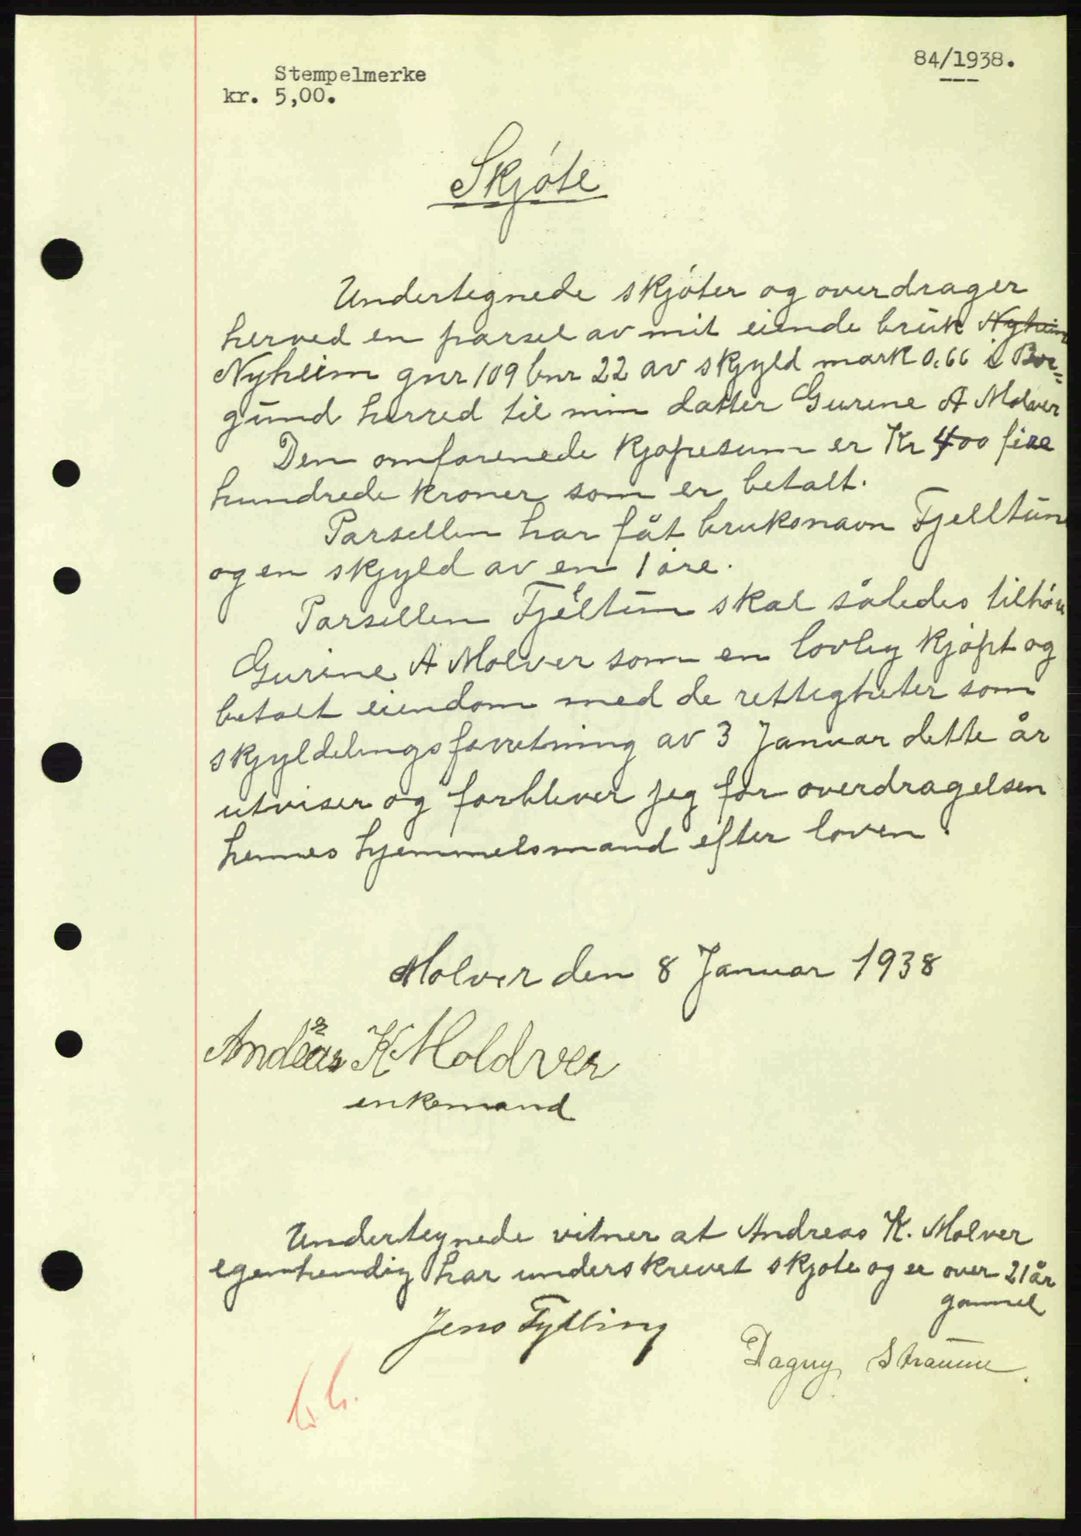 84/1938.
Stempelmerke
kr. 5,00.
Skjøte
Undertegnede skjøter og overdrager
herved en parsel av mit eiende bruk Nyheim
Nyheim gnr 109 bnr 22 av skyld mark 0.66 i Bor=
gund herred til min datter Gurine A Molver
Den omforenede kjøpesum er Kr 400 fire
hundrede kroner som er betalt.
Parsellen har fåt bruksnavn Fjelltun
og en skjyld av en 1 øre.
Parsellen Fjelltun skal således tilhøre
Gurine A Molver som en lovlig kjøpt og
betalt eiendom med de rettigheter som
skjyldelingsforretning av 3 Januar dette år
utviser og forbliver jeg for overdragelsen
hennes hjemmelsmand efter loven.
Molver den 8 Januar 1938
Andreas K Moldver
enkemand
Undertegnede vitner at Andreas K. Molver
egenhendig har underskrevet skjøte og er over 21 år
gammel
Jens Fylling
Dagny Straume.